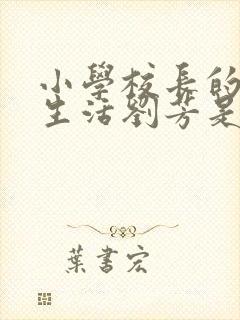 小學校長的
生活劉芳是
葉書宏